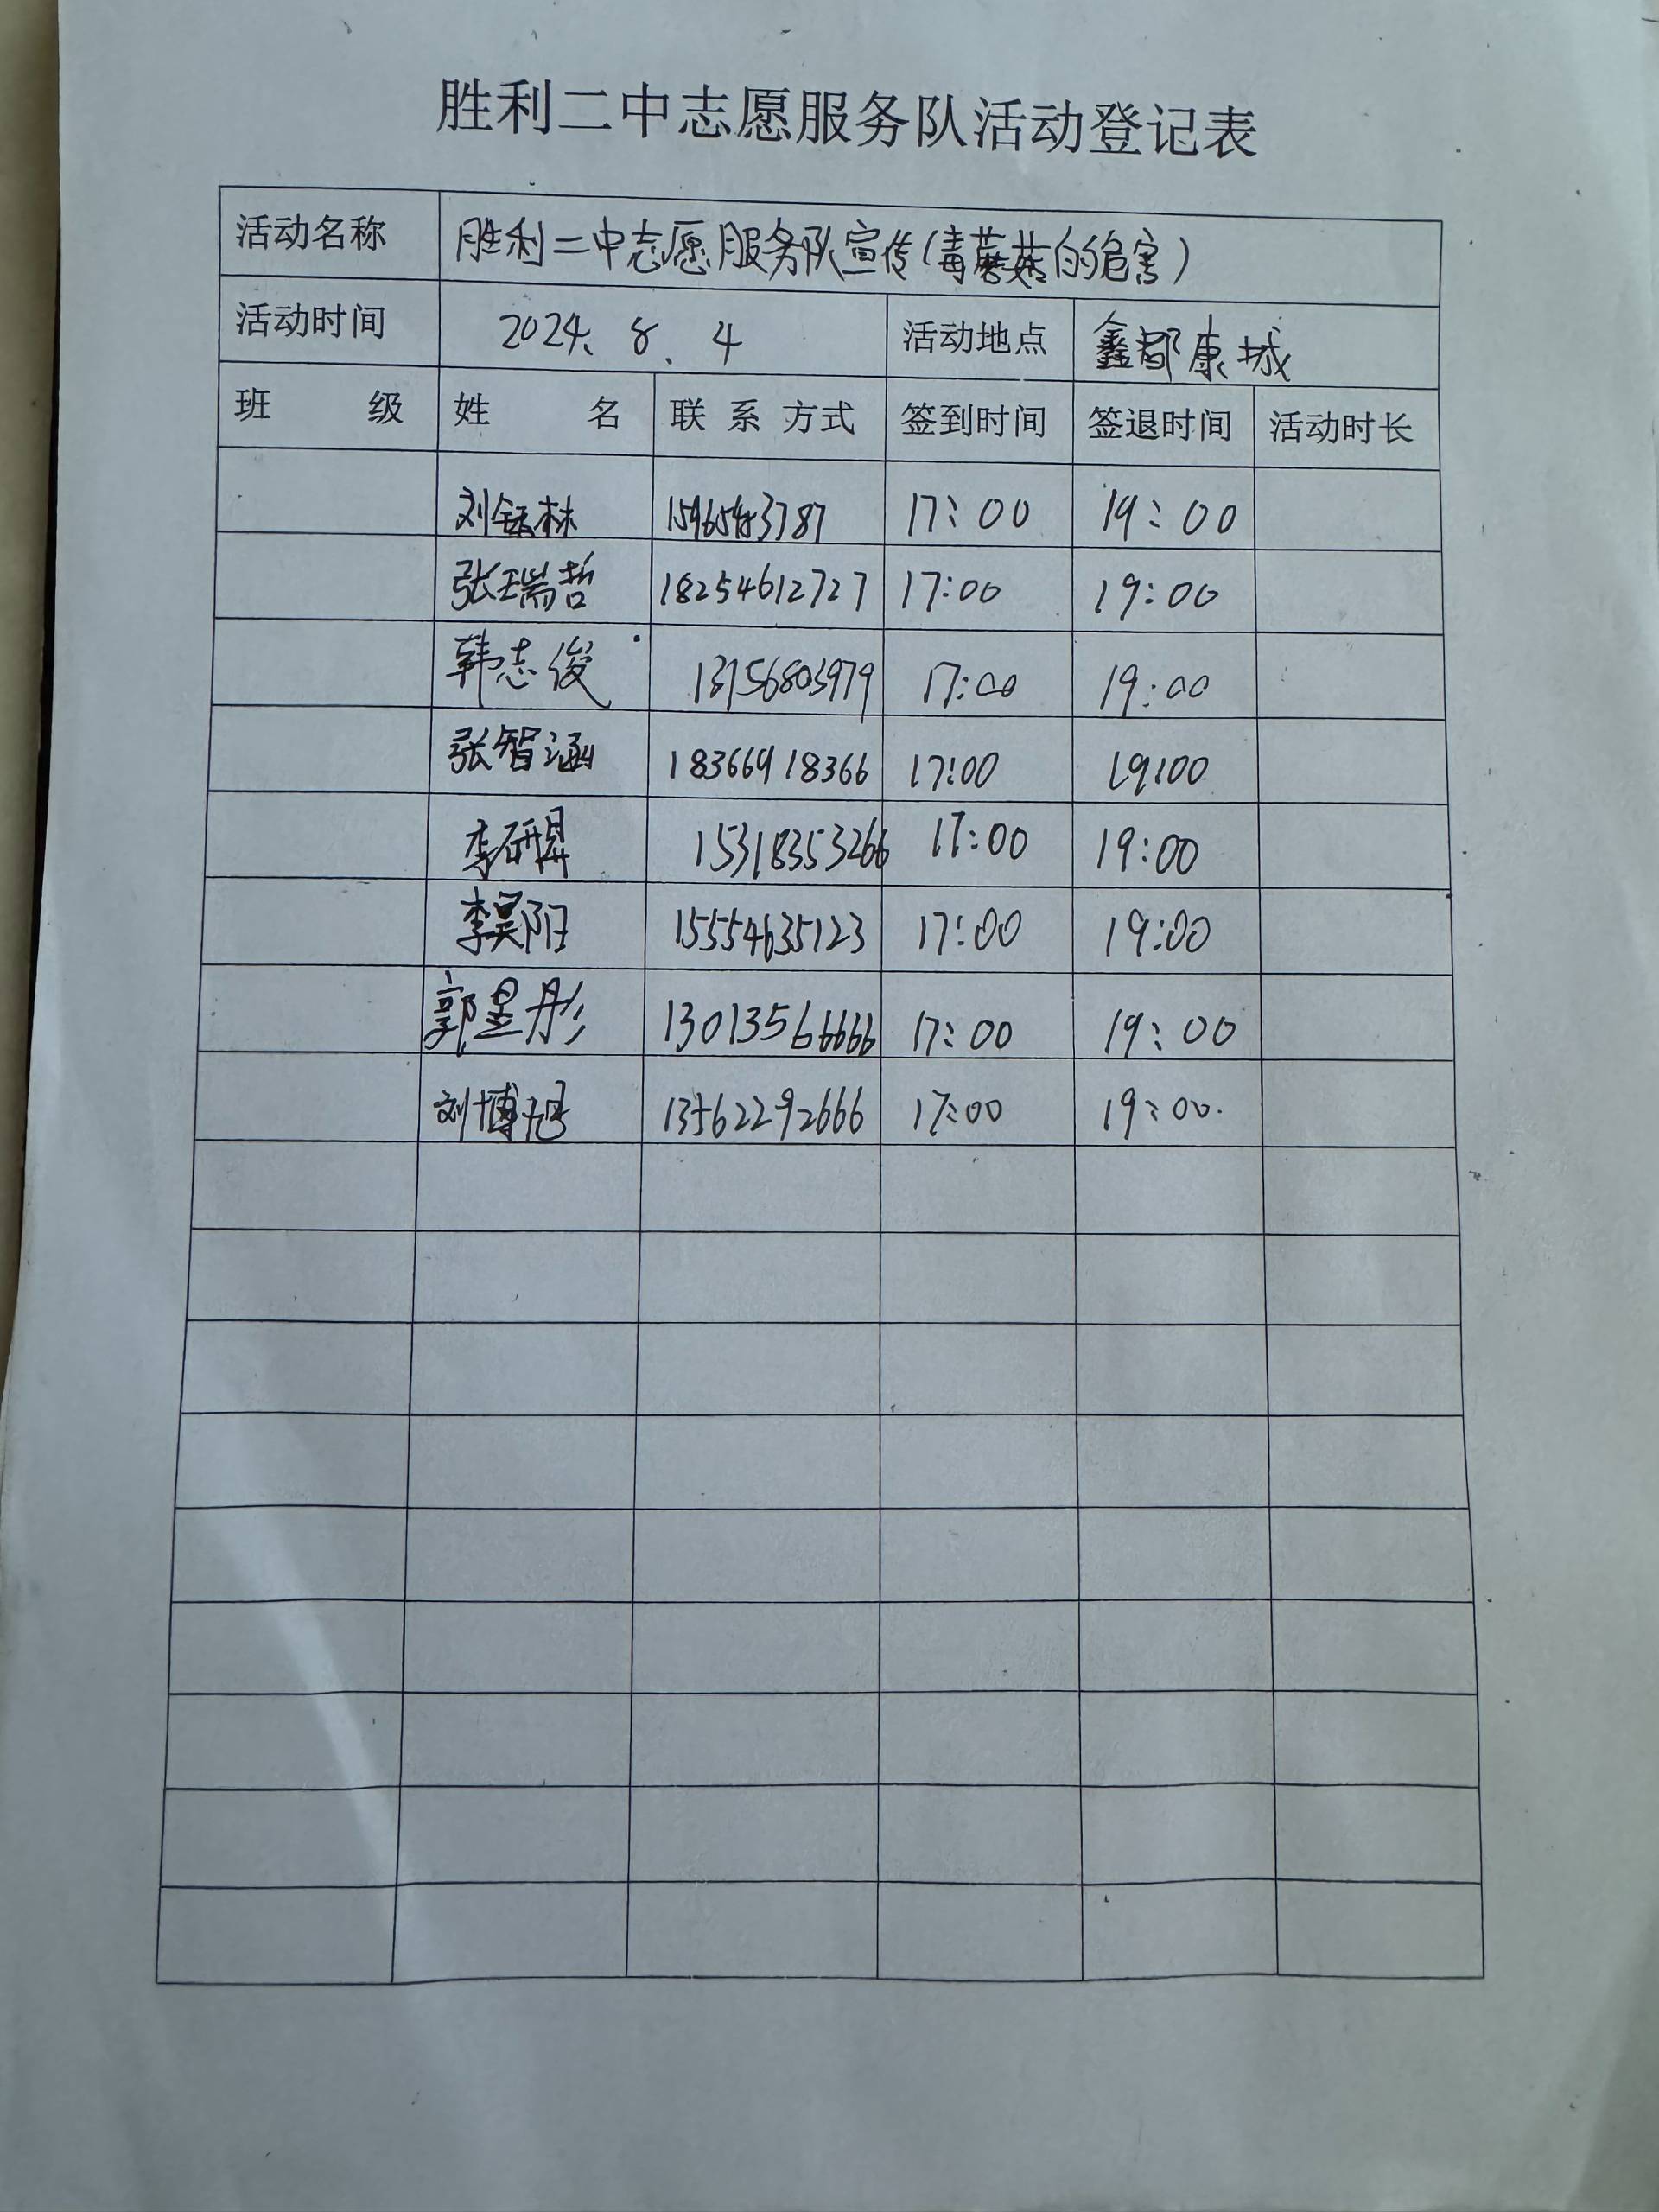 胜利二中志愿服务队活动登记表
活动名称 胜利二中志愿服务队宣传(毒蘑菇的危害)
活动时间 2024、8、4 活动地点 鑫都康城
班 级 姓 名 联 系 方式 签到时间 签退时间 活动时长
刘 林 17:00 19:00
张瑞哲 18254612727 17:00 19:00
韩志俊 13156803979 17:00 19:00
张智涵 18366918366 17:00 19:00
李研 15318353266 17:00 19:00
李昊阳 15554635123 17:00 19:00
郭昱彤 13013566666 17:00 19:00
刘博旭 13562292666 17:00 19:00.